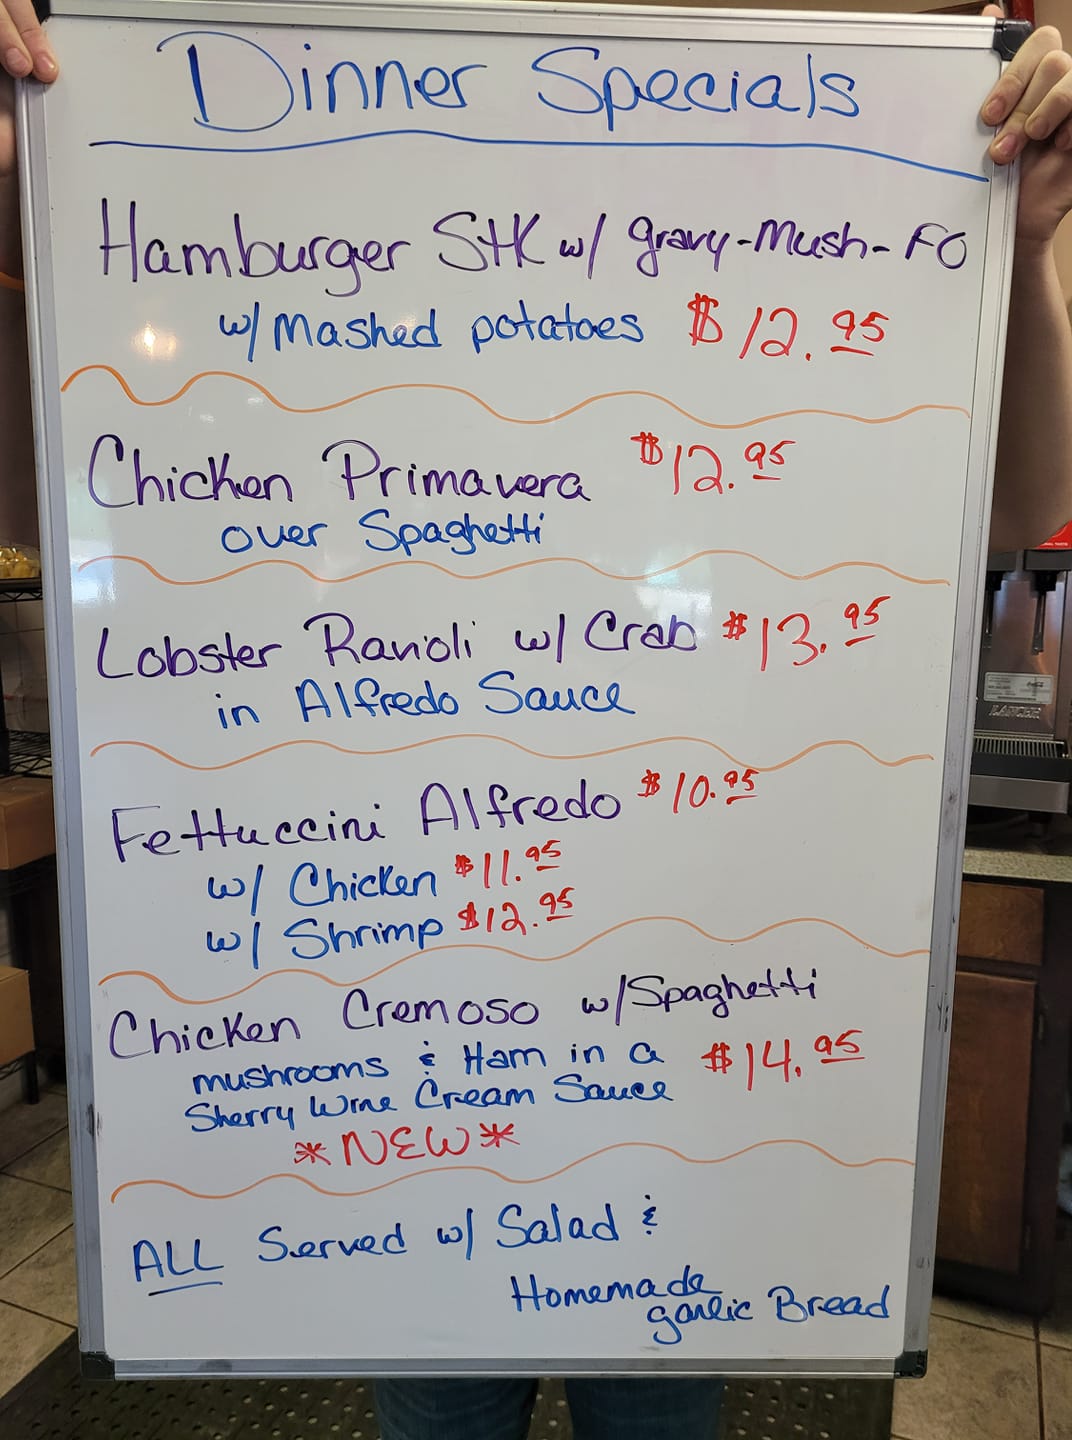 Dinner Specials
Hamburger Stk w/ gravy-Mush-FO
w/ Mashed potatoes $12.95
Chicken Primavera $12.95
over Spaghetti
Lobster Ravioli w/ Crab $13.95
in Alfredo Sauce
Fettuccini Alfredo $10.95
w/ Chicken $11.95
w/ Shrimp $12.95
Chicken Cremoso w/Spaghetti
mushrooms & Ham in a $14.95
Sherry Wine Cream Sauce
*NEW*
ALL Served w/ Salad &
Homemade
garlic Bread
LANCER